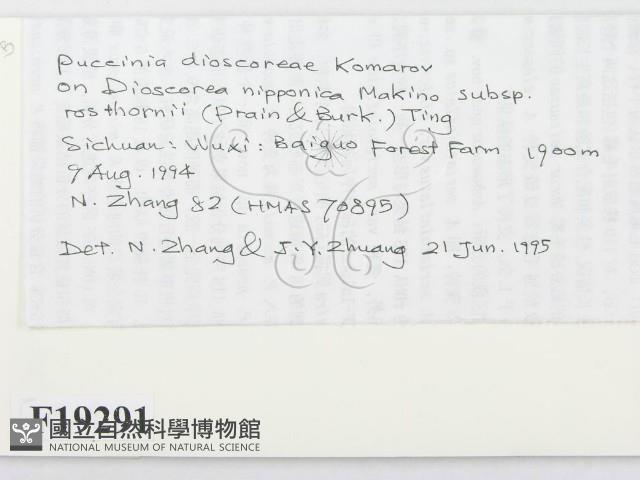 Puccinia dioscoreae Komarov
on Dioscorea nipponica Makino subsp.
rosthornii (Prain & Burk.) Ting
Sichuan: Wuxi: Baiguo Forest Farm 1900m
9 Aug. 1994
N. Zhang 82 (HMAS 70895)
Det. N. Zhang & J.Y. Zhuang 21 Jun. 1995
F19291
國立自然科學博物館
NATIONAL MUSEUM OF NATURAL SCIENCE